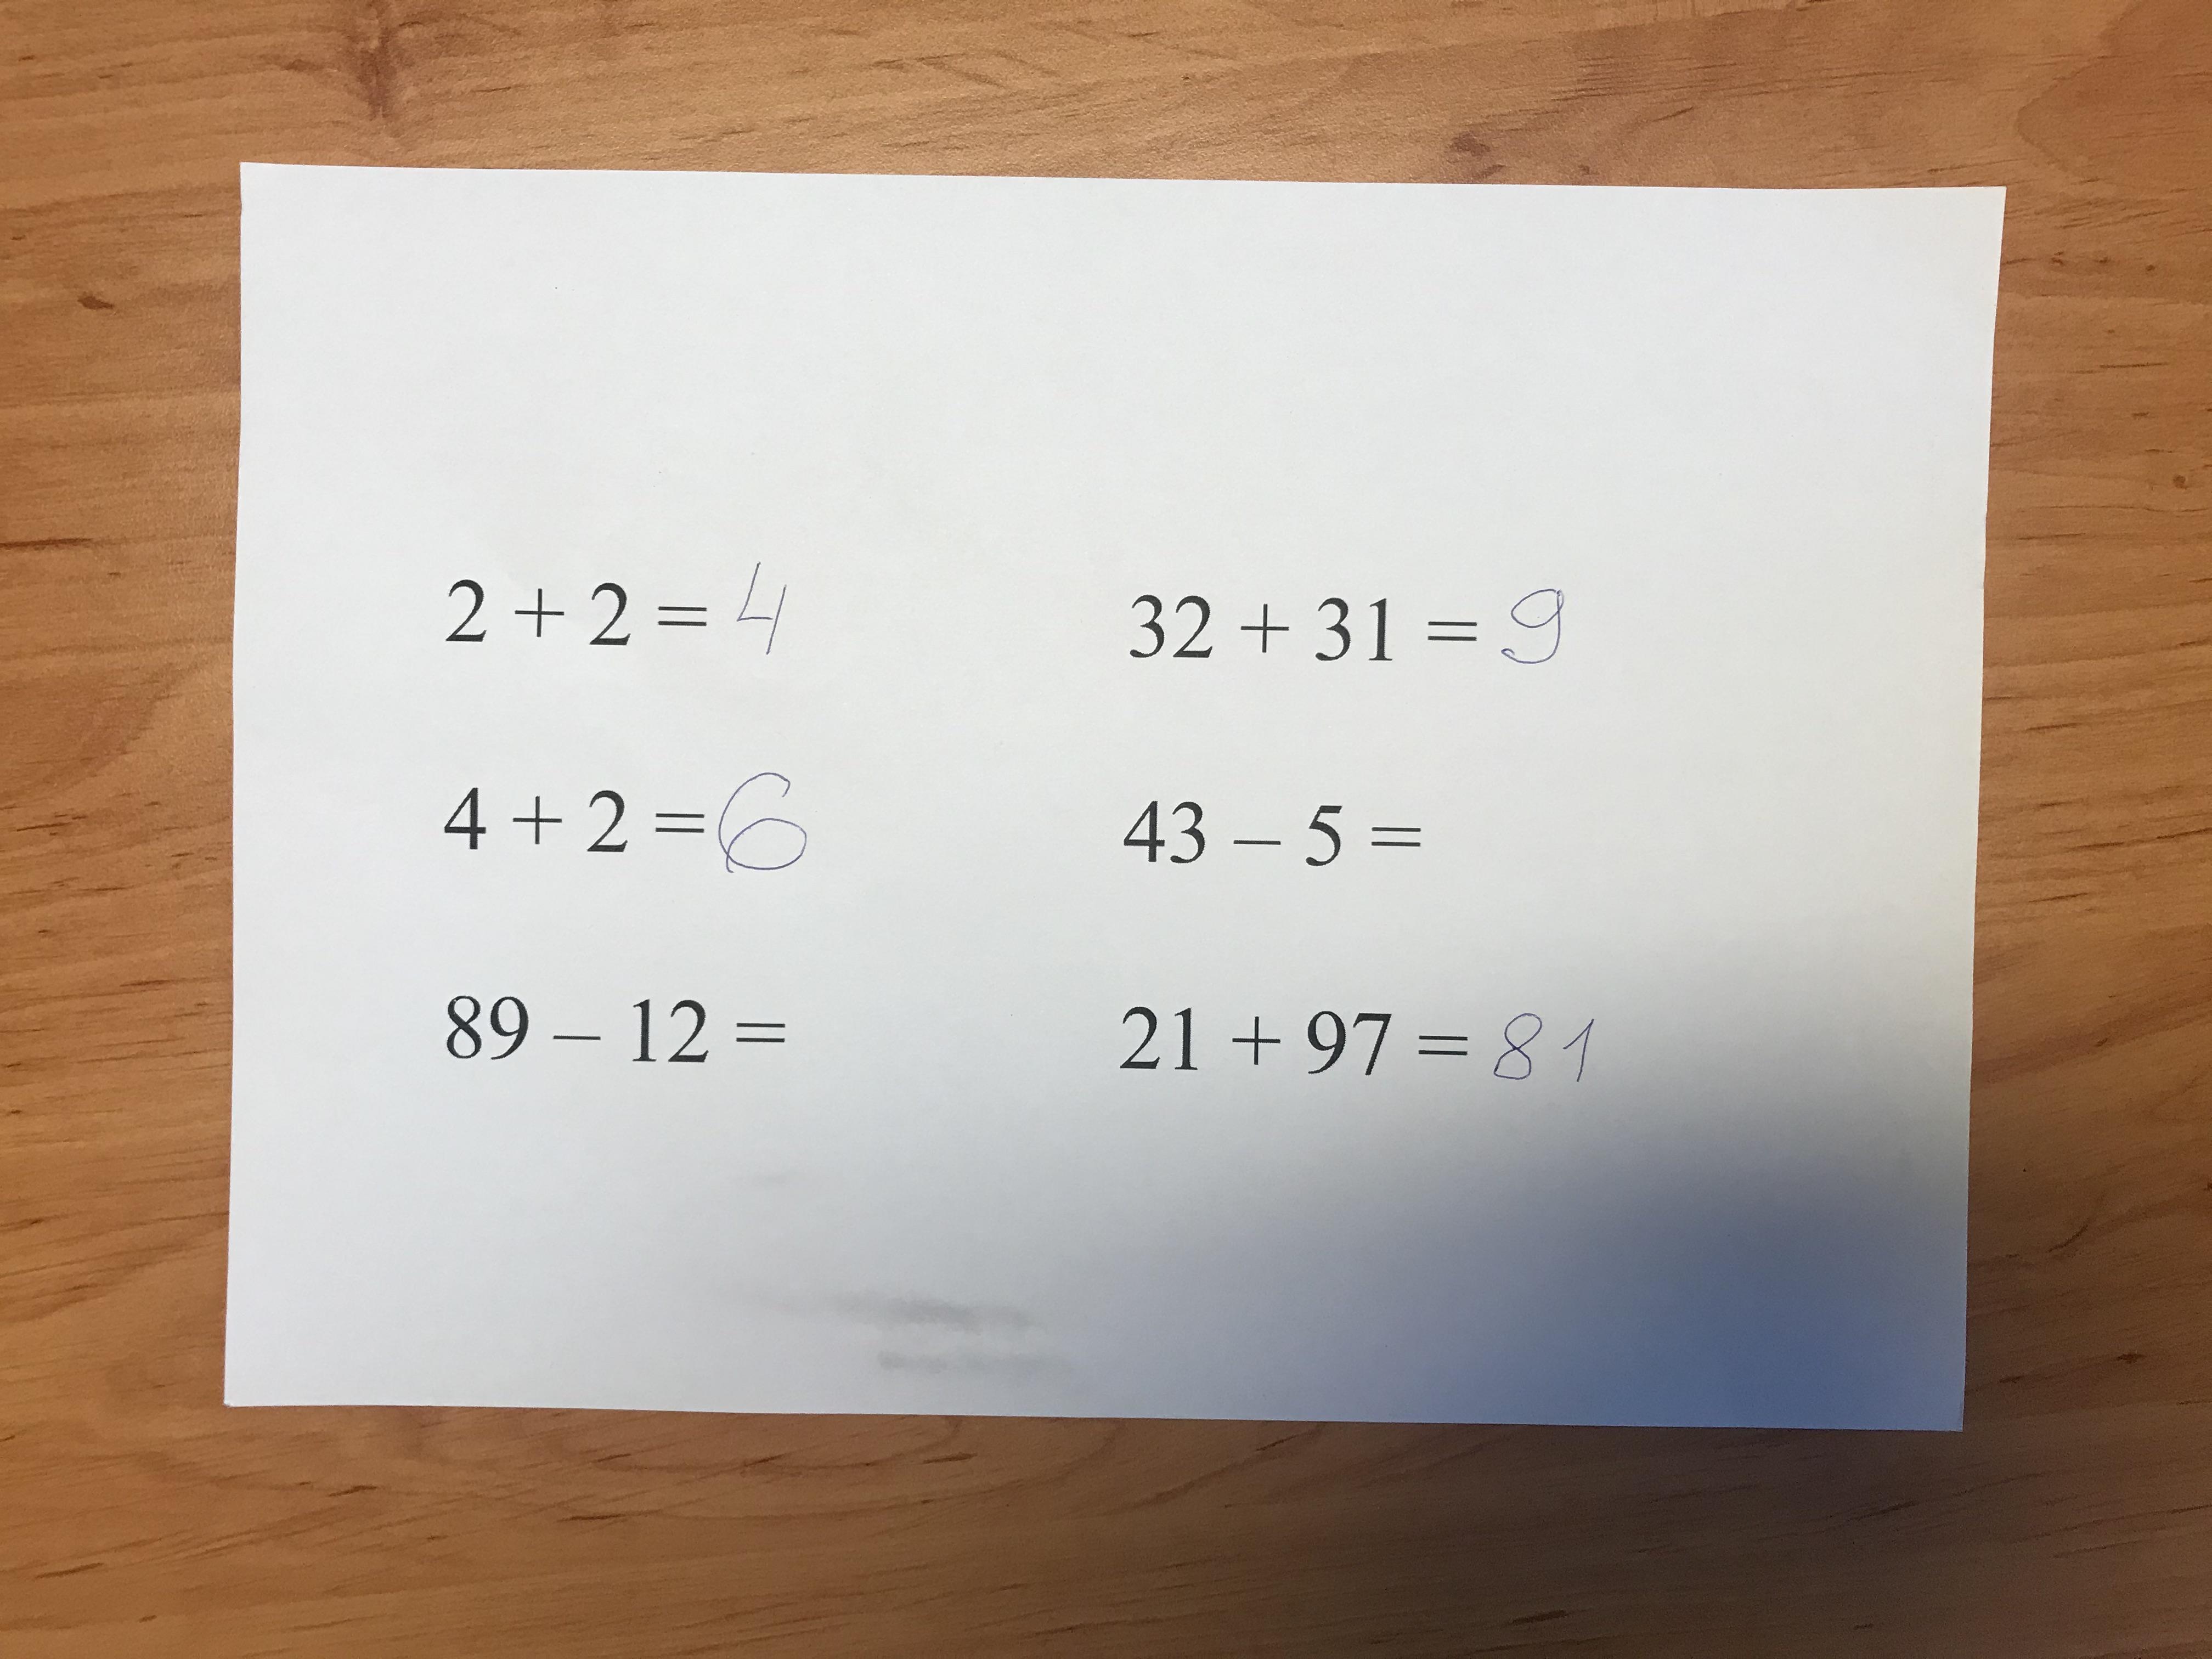 2 + 2 = 4
4 + 2 = 6
89 – 12 =
32 + 31 = 9
43 – 5 =
21 + 97 = 81